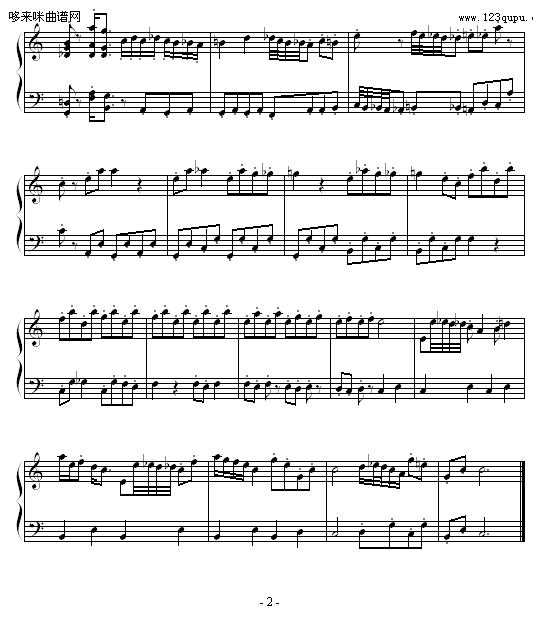 哆来咪曲谱网
www.123qupu.c
- 2 -